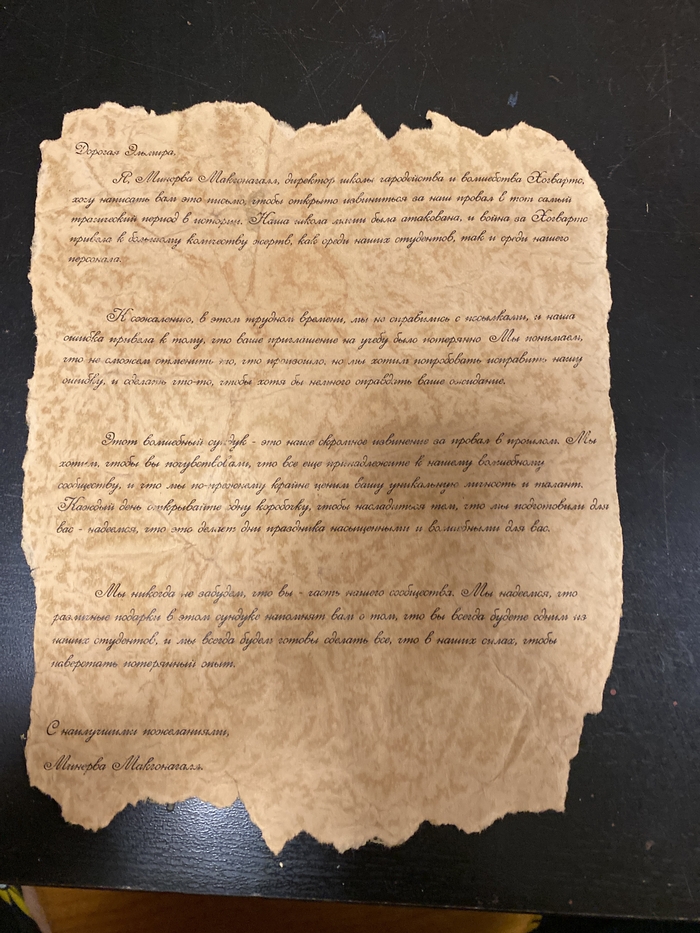 Дорогая Эльмира,
Я, Минерва Макгонагалл, директор школы чародейства и волшебства Хогвартс,
хочу написать вам это письмо, чтобы открыто извиниться за наш провал в тот самый
трагический период в истории. Наша школа магии была атакована, и война за Хогвартс
привела к большому количеству жертв, как среди наших студентов, так и среди нашего
персонала.
К сожалению, в этом трудном времени, мы не справились с посылками, и наша
ошибка привела к тому, что ваше приглашение на учебу было потеряно Мы понимаем,
что не сможем отменить то, что произошло, но мы хотим попробовать исправить нашу
ошибку, и сделать что-то, чтобы хотя бы немного оправдать ваше ожидание.
Этот волшебный сундук - это наше скромное извинение за провал в прошлом. Мы
хотим, чтобы вы почувствовали, что все еще принадлежите к нашему волшебному
сообществу, и что мы по-прежнему крайне ценим вашу уникальную личность и талант.
Каждый день открывайте одну коробочку, чтобы насладиться тем, что мы подготовили для
вас - надеемся, что это делает дни праздника насыщенными и волшебными для вас.
Мы никогда не забудем, что вы - часть нашего сообщества. Мы надеемся, что
различные подарки в этом сундуке напомнят вам о том, что вы всегда будете одним из
наших студентов, и мы всегда будем готовы сделать все, что в наших силах, чтобы
наверстать потерянный опыт.
С наилучшими пожеланиями,
Минерва Макгонагалл.